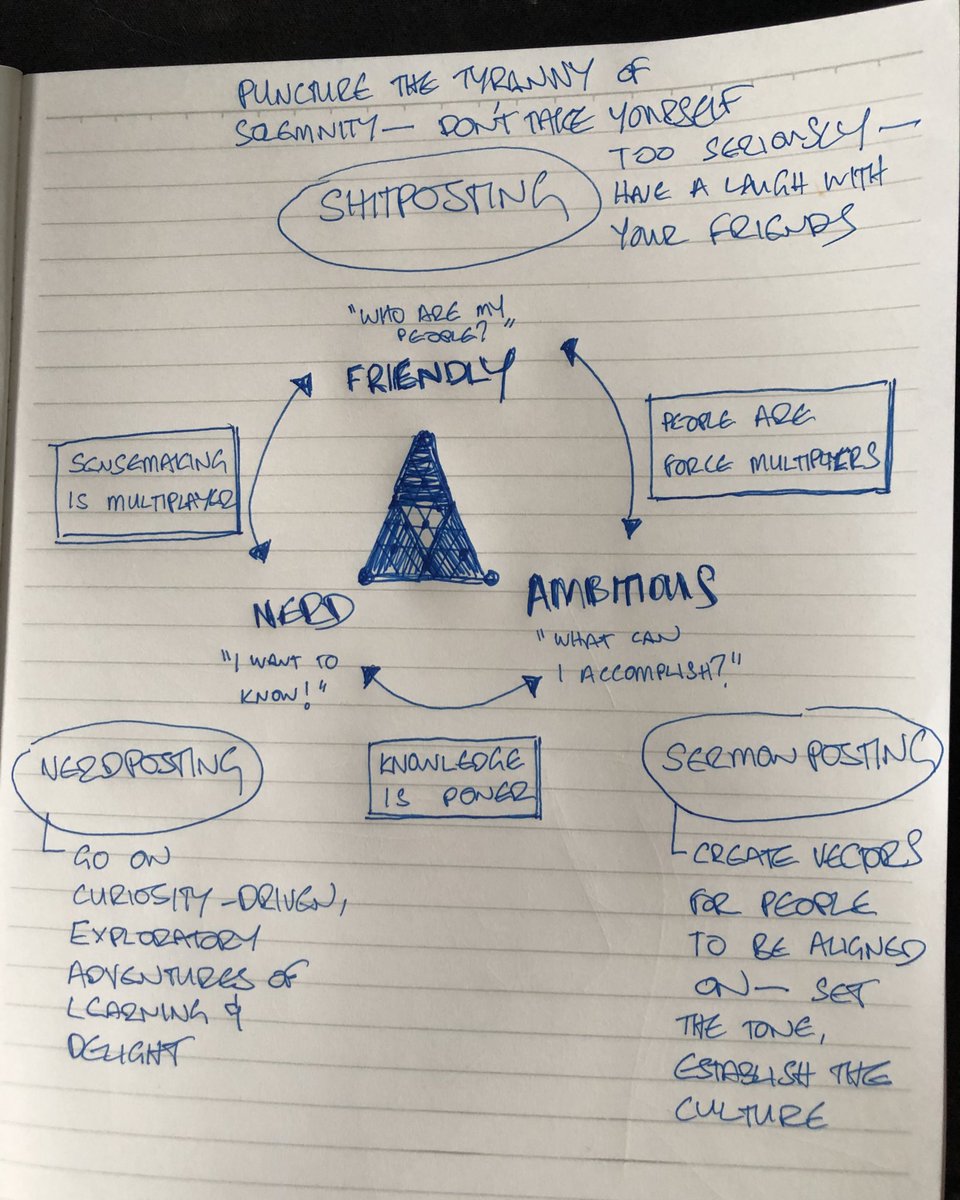 PUNCTURE THE TYRANNY OF
SOLEMNITY — DON'T TAKE YOURSELF
TOO SERIOUSLY —
HAVE A LAUGH WITH
YOUR FRIENDS
SHITPOSTING
"WHO ARE MY
PEOPLE?"
FRIENDLY
SENSEMAKING
IS MULTIPLAYER
PEOPLE ARE
FORCE MULTIPLYERS
NERD
"I WANT TO
KNOW!"
AMBITIOUS
"WHAT CAN
I ACCOMPLISH?"
KNOWLEDGE
IS POWER
NERDPOSTING
GO ON
CURIOSITY-DRIVEN,
EXPLORATORY
ADVENTURES OF
LEARNING &
DELIGHT
SERMON POSTING
CREATE VECTORS
FOR PEOPLE
TO BE ALIGNED
ON — SET
THE TONE,
ESTABLISH THE
CULTURE